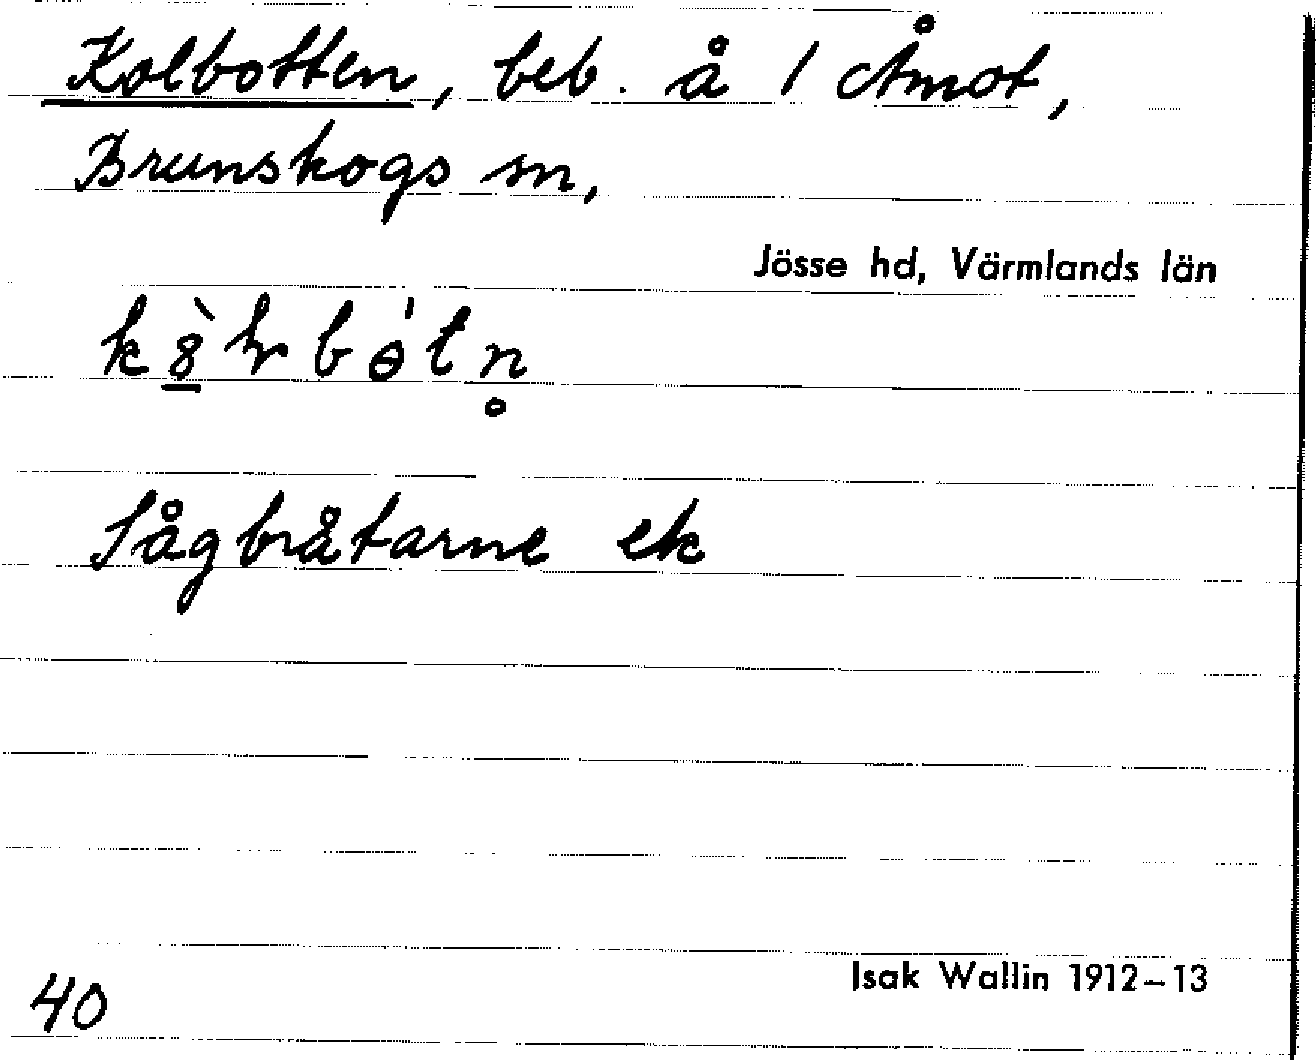 Kolbotten, beb. å 1 Åmot,
Brunskogs sn,
Jösse hd, Värmlands län
Sågbråtarne ek
Isak Wallin 1912–13
40